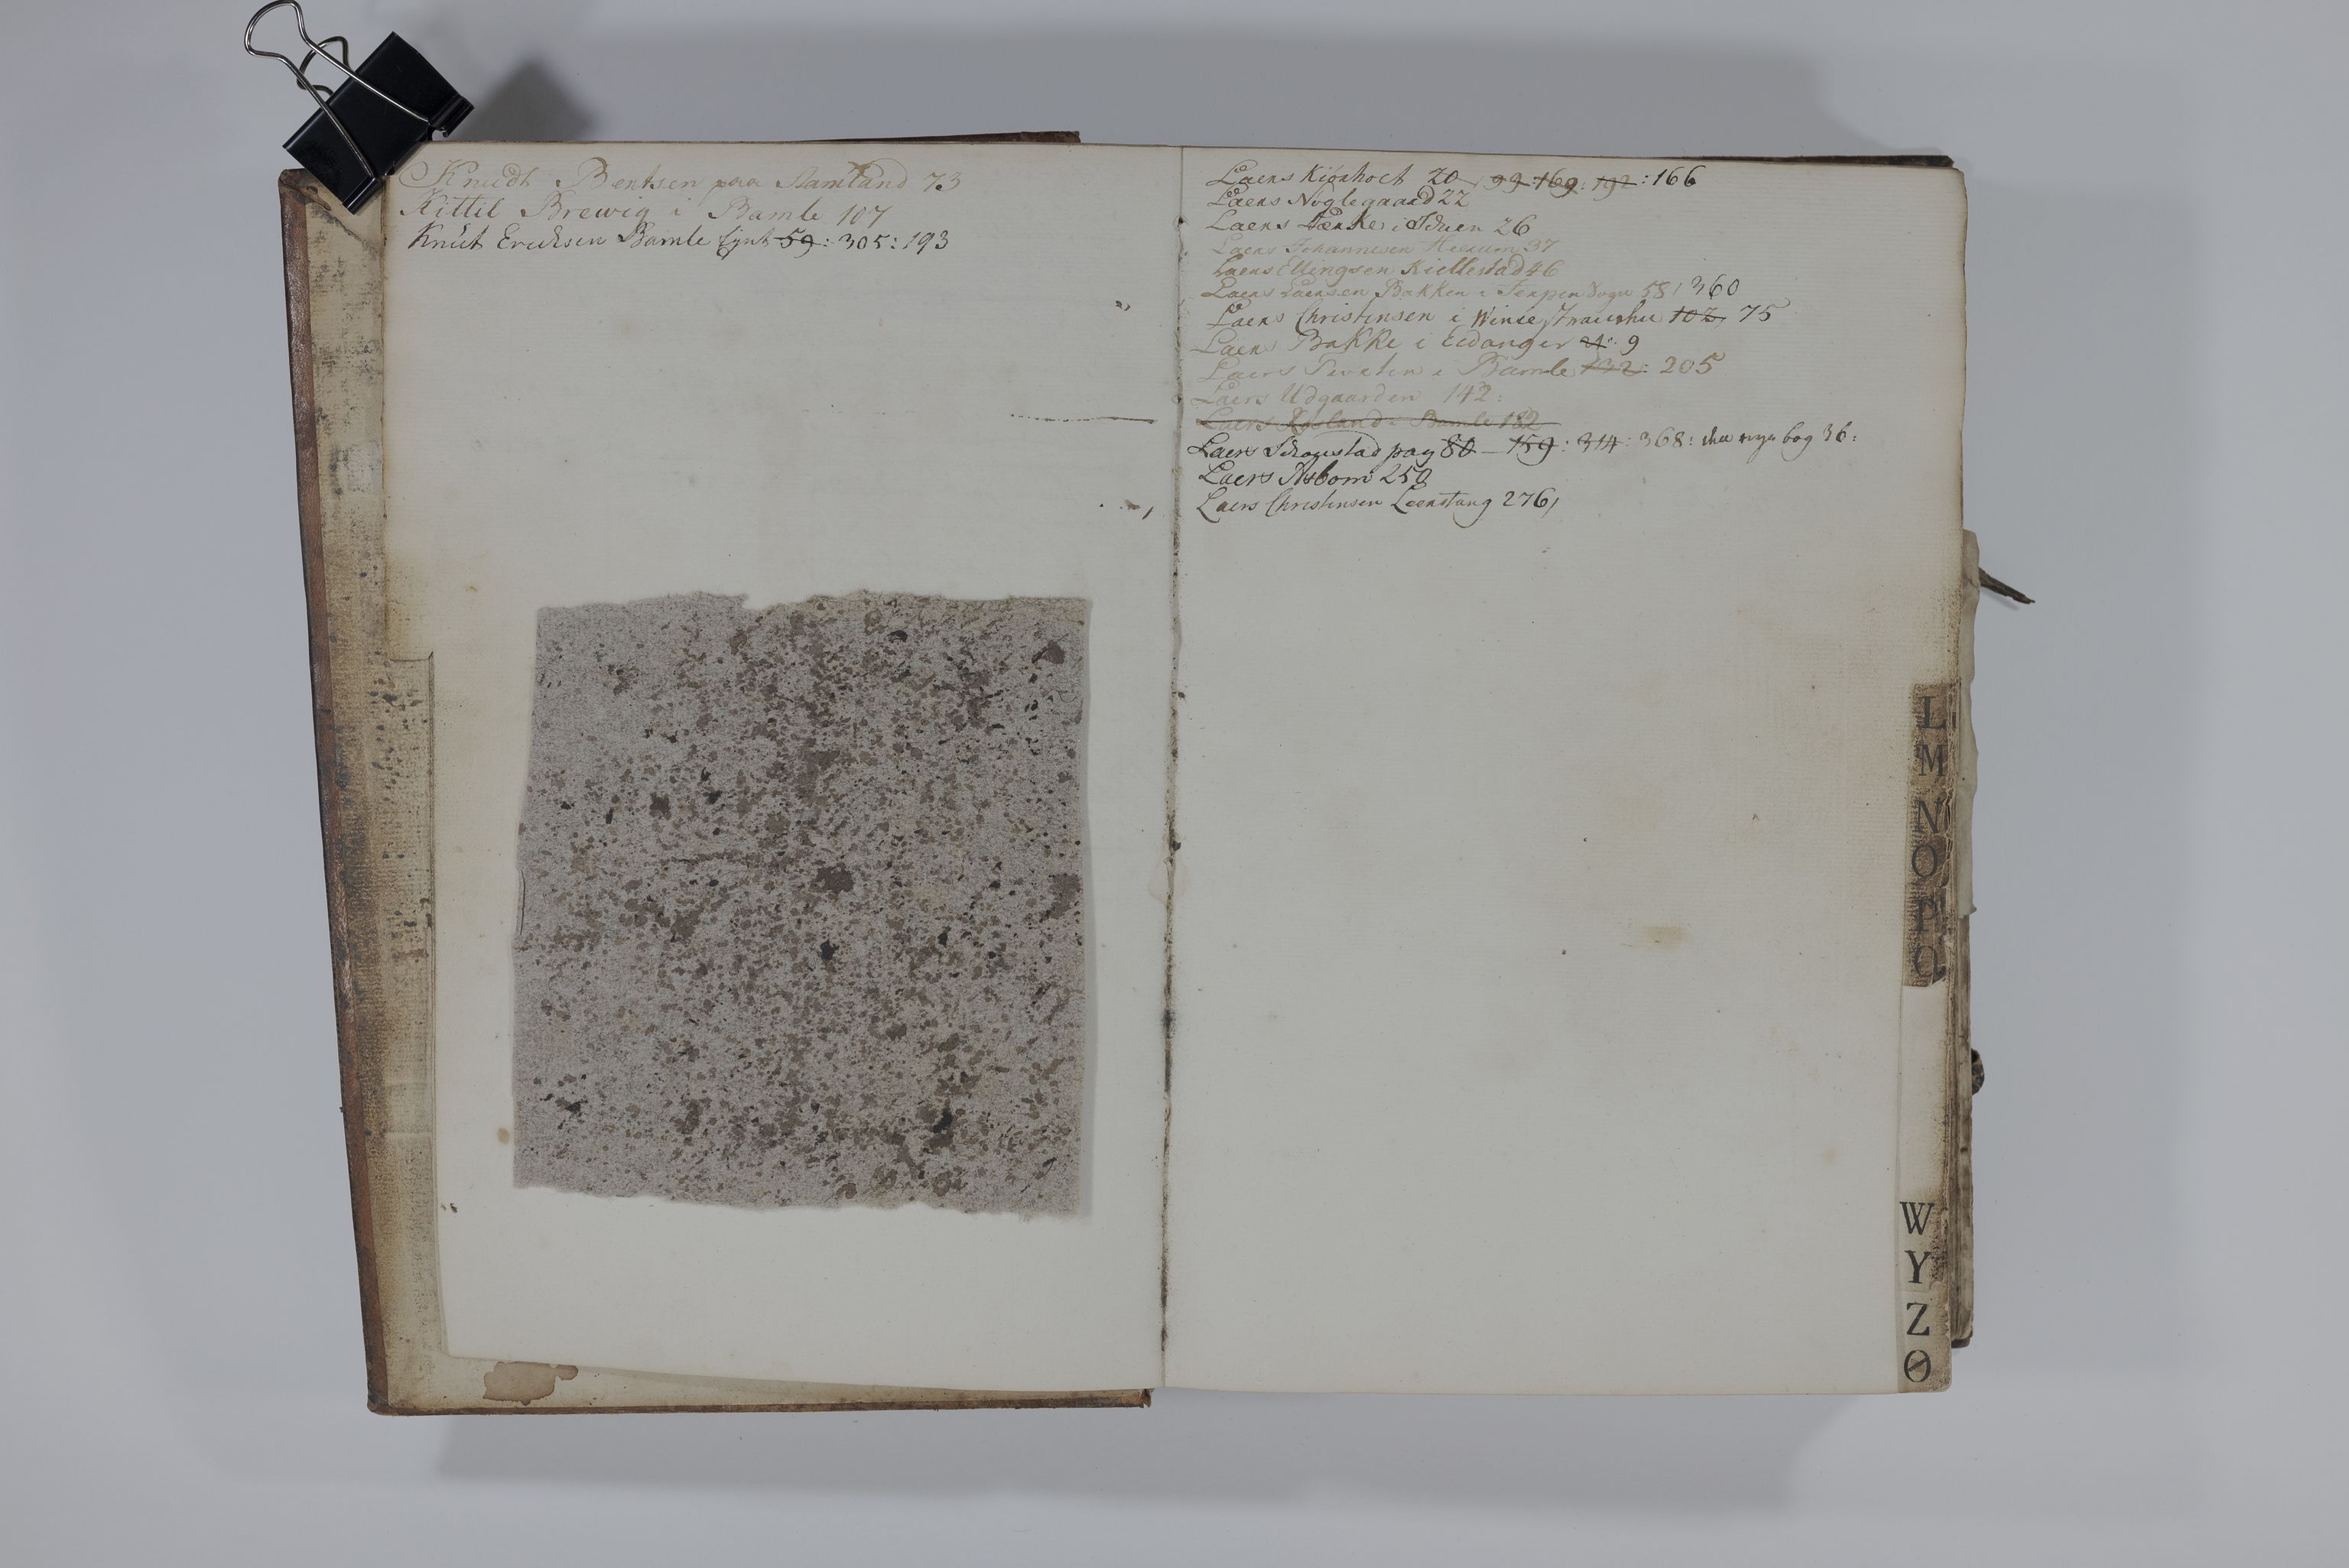 Knudt Bentsen paa Aamland 73
Kittil Brewig i Bamle 107
Knut Ericksen Bamle 59: 305: 193
Laers Kiønholt 20 99 169: 192: 166
Laers Nøglegaard 22
Laers Lænke i Iduen 26
Laers Johannesen Heerum 37
Laers Ellingsen Kiellestad 46
Laers Laersen Bakken i Sogn 58, 360
Laers Christensen i 102, 75
Laers Bakke i Eidanger 4: 9
Laers i Bamle 132: 205
Laers Udgaarden 142:
Laers i Bamle 182
Laers pag 80 159: 314: 368: nye bog 36:
Laers Aasbom 250
Laers Christensen Leerstang 276,
L
M
N
O
P
Q
W
Y
Z
Ø